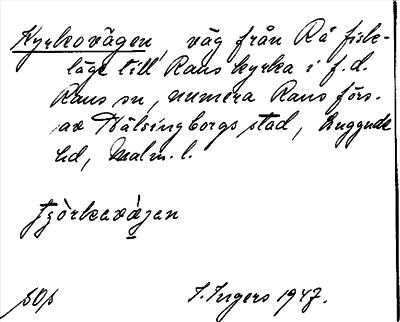 Kyrkovägen, väg från Rå fisk-
läge till Raus kyrka i f.d.
Raus sn, numera Raus förs.
av Hälsingborgs stad, Luggude
hd, Malm. l.
tjörkavägan
sOs
I. Ingers 1947.